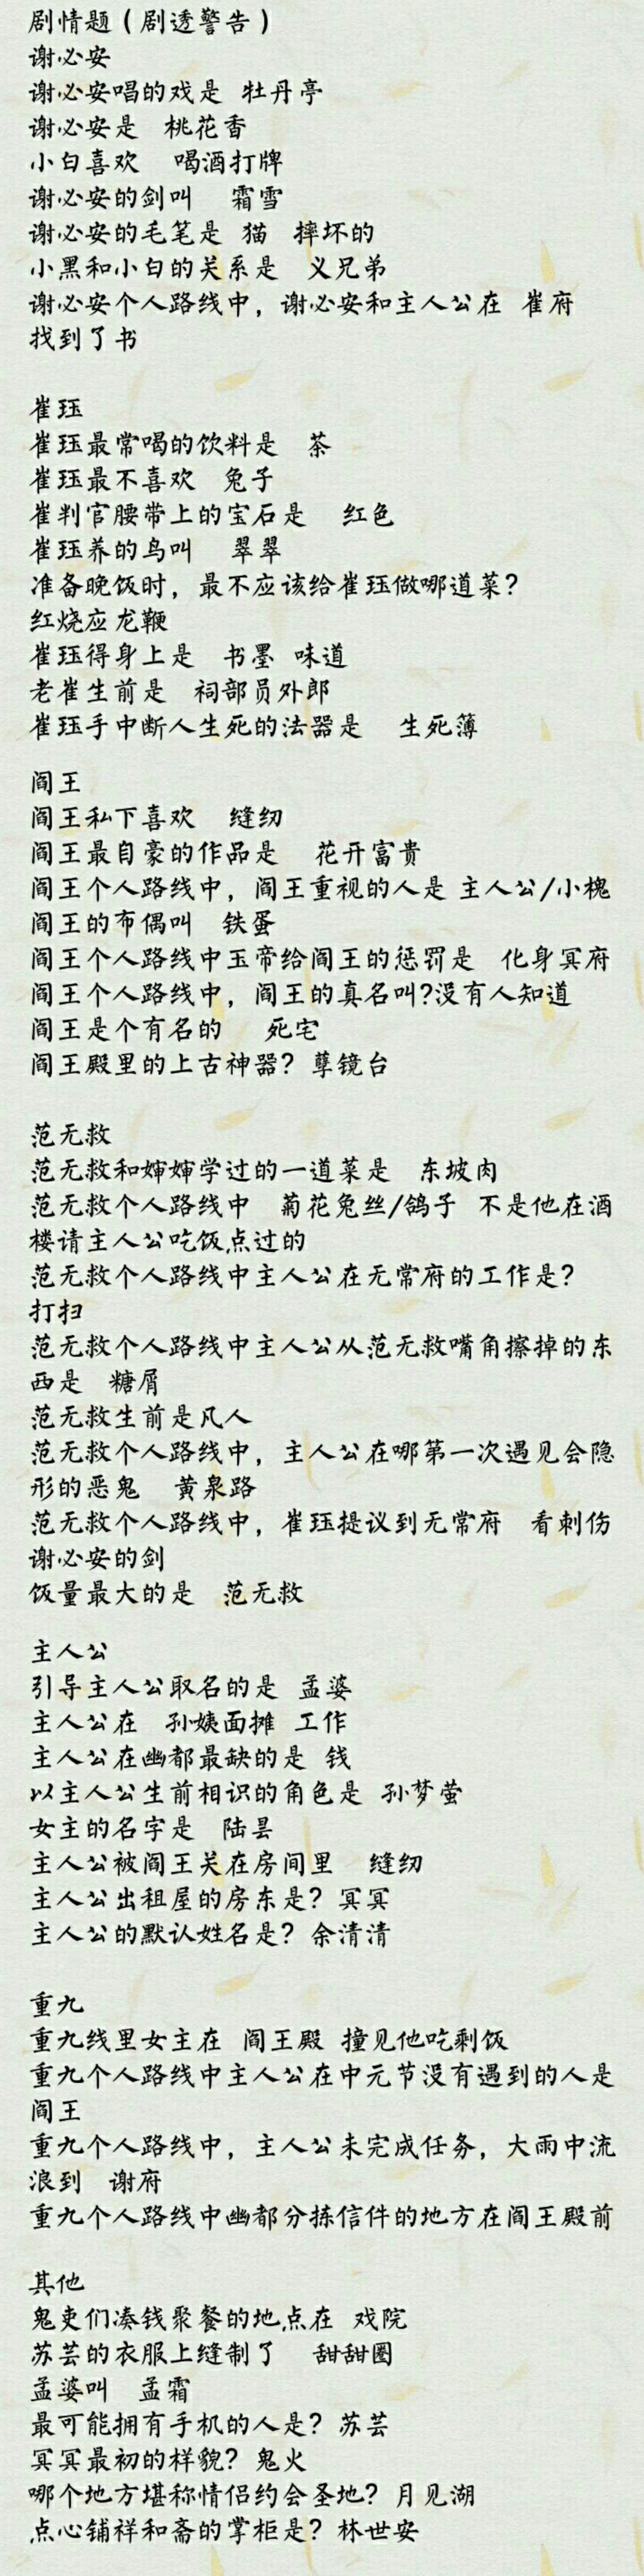 剧情题（剧透警告）
谢必安
谢必安唱的戏是 牡丹亭
谢必安是 桃花香
小白喜欢 喝酒打牌
谢必安的剑叫 霜雪
谢必安的毛笔是 猫 摔坏的
小黑和小白的关系是 义兄弟
谢必安个人路线中，谢必安和主人公在 崔府
找到了书
崔珏
崔珏最常喝的饮料是 茶
崔珏最不喜欢 兔子
崔判官腰带上的宝石是 红色
崔珏养的鸟叫 翠翠
准备晚饭时，最不应该给崔珏做哪道菜？
红烧应龙鞭
崔珏得身上是 书墨 味道
老崔生前是 祠部员外郎
崔珏手中断人生死的法器是 生死簿
阎王
阎王私下喜欢 缝纫
阎王最自豪的作品是 花开富贵
阎王个人路线中，阎王重视的人是 主人公/小槐
阎王的布偶叫 铁蛋
阎王个人路线中玉帝给阎王的惩罚是 化身冥府
阎王个人路线中，阎王的真名叫?没有人知道
阎王是个有名的 死宅
阎王殿里的上古神器？孽镜台
范无救
范无救和婶婶学过的一道菜是 东坡肉
范无救个人路线中 菊花兔丝/鸽子 不是他在酒
楼请主人公吃饭点过的
范无救个人路线中主人公在无常府的工作是？
打扫
范无救个人路线中主人公从范无救嘴角擦掉的东
西是 糖屑
范无救生前是凡人
范无救个人路线中，主人公在哪第一次遇见会隐
形的恶鬼 黄泉路
范无救个人路线中，崔珏提议到无常府 看刺伤
谢必安的剑
饭量最大的是 范无救
主人公
引导主人公取名的是 孟婆
主人公在 孙姨面摊 工作
主人公在幽都最缺的是 钱
以主人公生前相识的角色是 孙梦萤
女主的名字是 陆昙
主人公被阎王关在房间里 缝纫
主人公出租屋的房东是？冥冥
主人公的默认姓名是？余清清
重九
重九线里女主在 阎王殿 撞见他吃剩饭
重九个人路线中主人公在中元节没有遇到的人是
阎王
重九个人路线中，主人公未完成任务，大雨中流
浪到 谢府
重九个人路线中幽都分拣信件的地方在阎王殿前
其他
鬼吏们凑钱聚餐的地点在 戏院
苏芸的衣服上缝制了 甜甜圈
孟婆叫 孟霜
最可能拥有手机的人是？苏芸
冥冥最初的样貌？鬼火
哪个地方堪称情侣约会圣地？月见湖
点心铺祥和斋的掌柜是？林世安